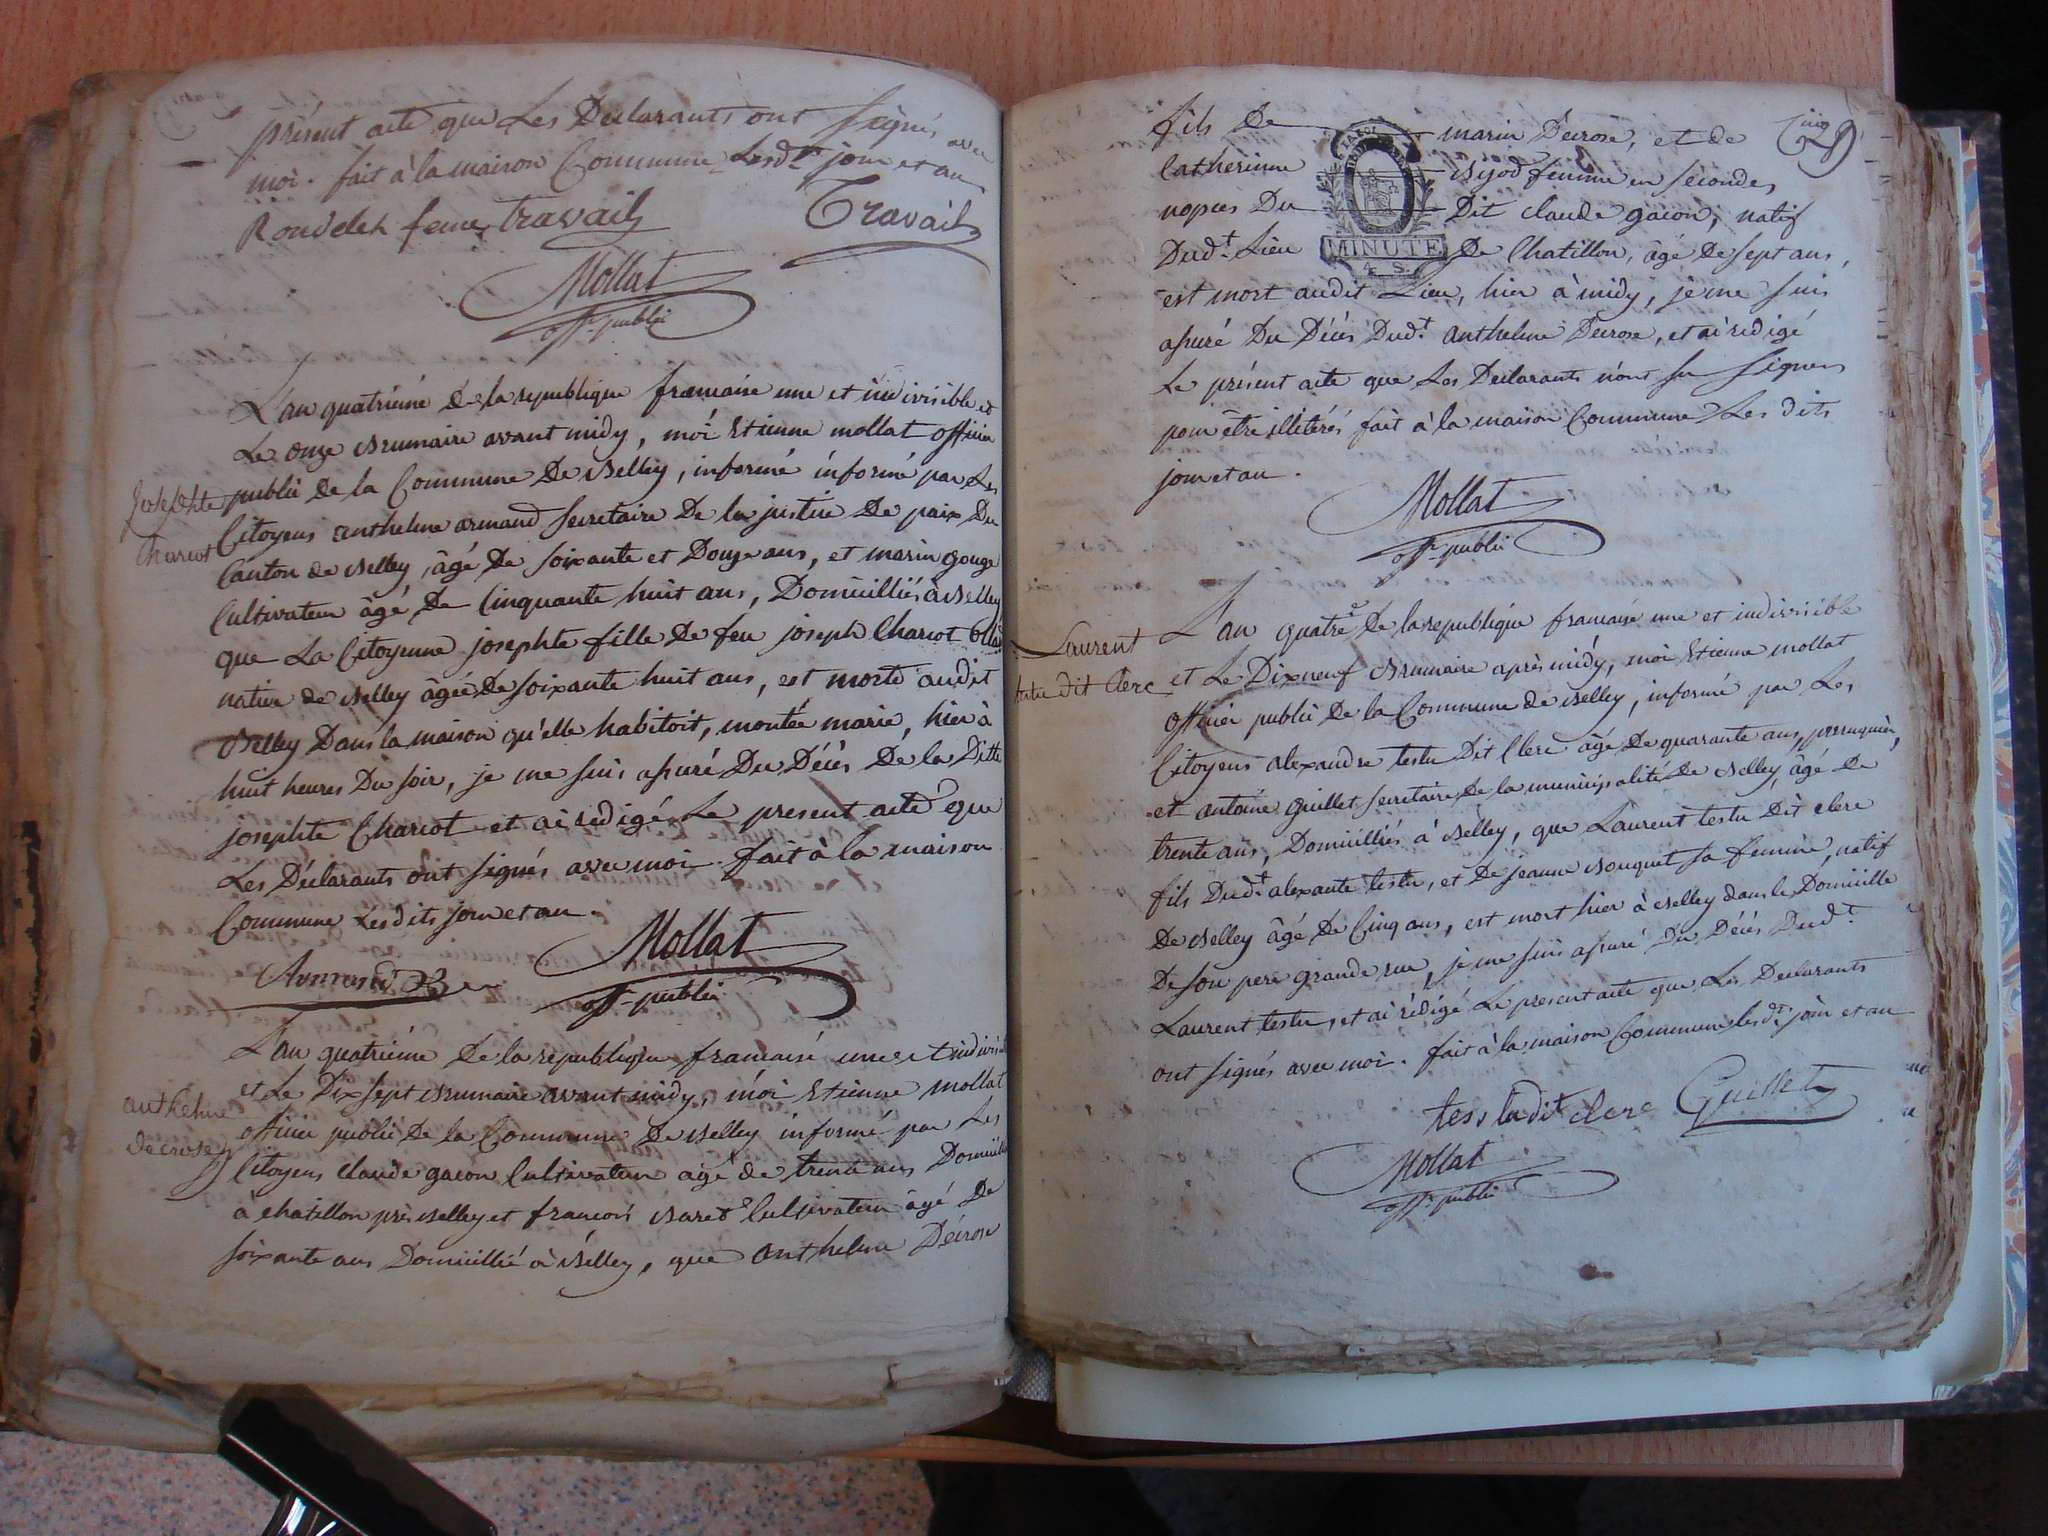 présent acte que Les Déclarants ont signés avec
moi. fait à la maison Commune Lesdt. jour et an
Rondelet femme travail Travail
Mollat
off. public
L'an quatriéme De la republique francaise une et indivisible et
Le onze Brumaire avant midy, moi Etienne mollat officier
public De la Commune De Belley, informé informé par Les
Josephte
Charcot
Citoyens anthelme armand secretaire De la justice De paix Du
Canton de Belley, âgé De soixante et Douze ans, et marin gouge
Cultivateur âgé De Cinquante huit ans, Domicilliés à Belley
que La Citoyenne josephte fille De feu joseph Charcot
native de Belley âgée De soixante huit ans, est morte audit
Belley Dans la maison qu'elle habitoit, montée marie, hier à
huit heures Du soir, je me suis assuré Du Décès De la Ditte
josephte Charcot et ai rédigé Le present acte que
Les Déclarants ont signés avec moi fait à la maison
Commune Lesdits jour et an.
Mollat
off. public
Armand
L'an quatriéme De la republique francaise une et indivisi
et Le Dix sept Brumaire avant midy, moi Etienne mollat
officier public De la Commune De Belley informé par Les
anthelme
decrose
Citoyens claude gacon Cultivateur agé de trente ans Domicillié
à chatillon près Belley et francois Baret Cultivateur âgé De
soixante ans Domicillié à Belley, que anthelme Décrose
Cinq
29
fils De marin Decrose, et de
Catherinne femme en secondes
nopces Du Dit claude gacon, natif
Dudt. Lieu De Chatillon, âgé De sept ans,
MINUTE
4 S.
est mort audit Lieu, hier à midy, je me suis
assuré Du Décès Dudt. anthelme Decrose, et ai rédigé
Le présent acte que Les Declarants n'ont su signer
pour être illitérés fait à la maison Commune Les dits
jour et an.
Mollat
off. public
L'an quatre. De la republique francaise une et indivisible
Laurent
testu dit Clerc
et Le Dix neuf Brumaire après midy, moi Etienne mollat
officier public De la Commune de Belley, informé par Les
Citoyens alexandre testu Dit Clerc âgé De quarante ans, perruquier,
et antoine guillet secretaire De la municipalité De Belley, âgé De
trente ans, Domicilliés à Belley, que Laurent testu Dit clerc
fils Dudt. alexante testu, et De jeanne Bouquet sa femme, natif
De Belley âgé De Cinq ans, est mort hier à Belley dans le Domicille
De son pere grande rue, je me suis assuré Du Décès Dudt.
Laurent testu, et ai rédigé Le present acte que Les Declarants
ont signés avec moi. fait à la maison Commune lesdt. jour et an
testu dit clerc Guillet
Mollat
off. public